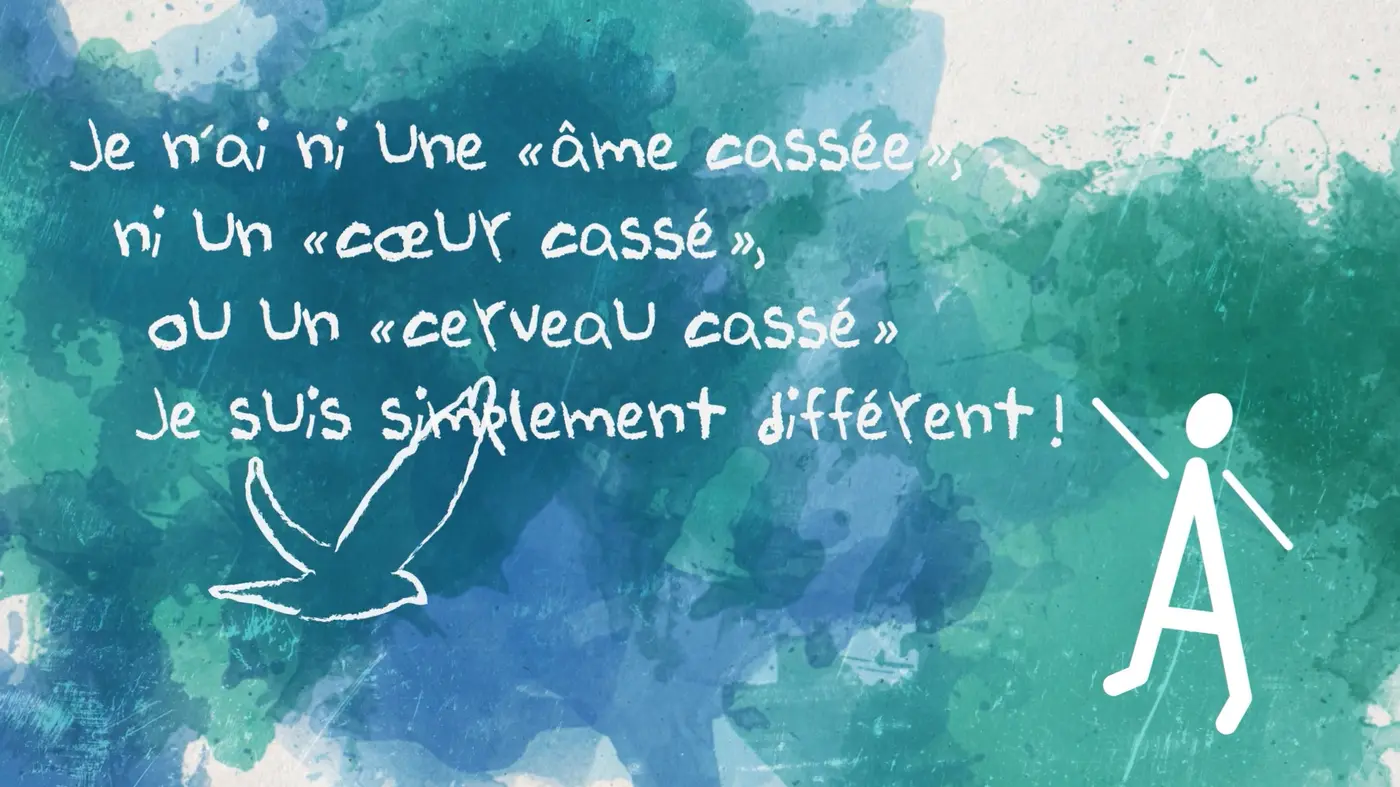 Je n'ai ni une «âme cassée»,
ni un «cœur cassé»,
ou un «cerveau cassé»
Je suis simplement différent!